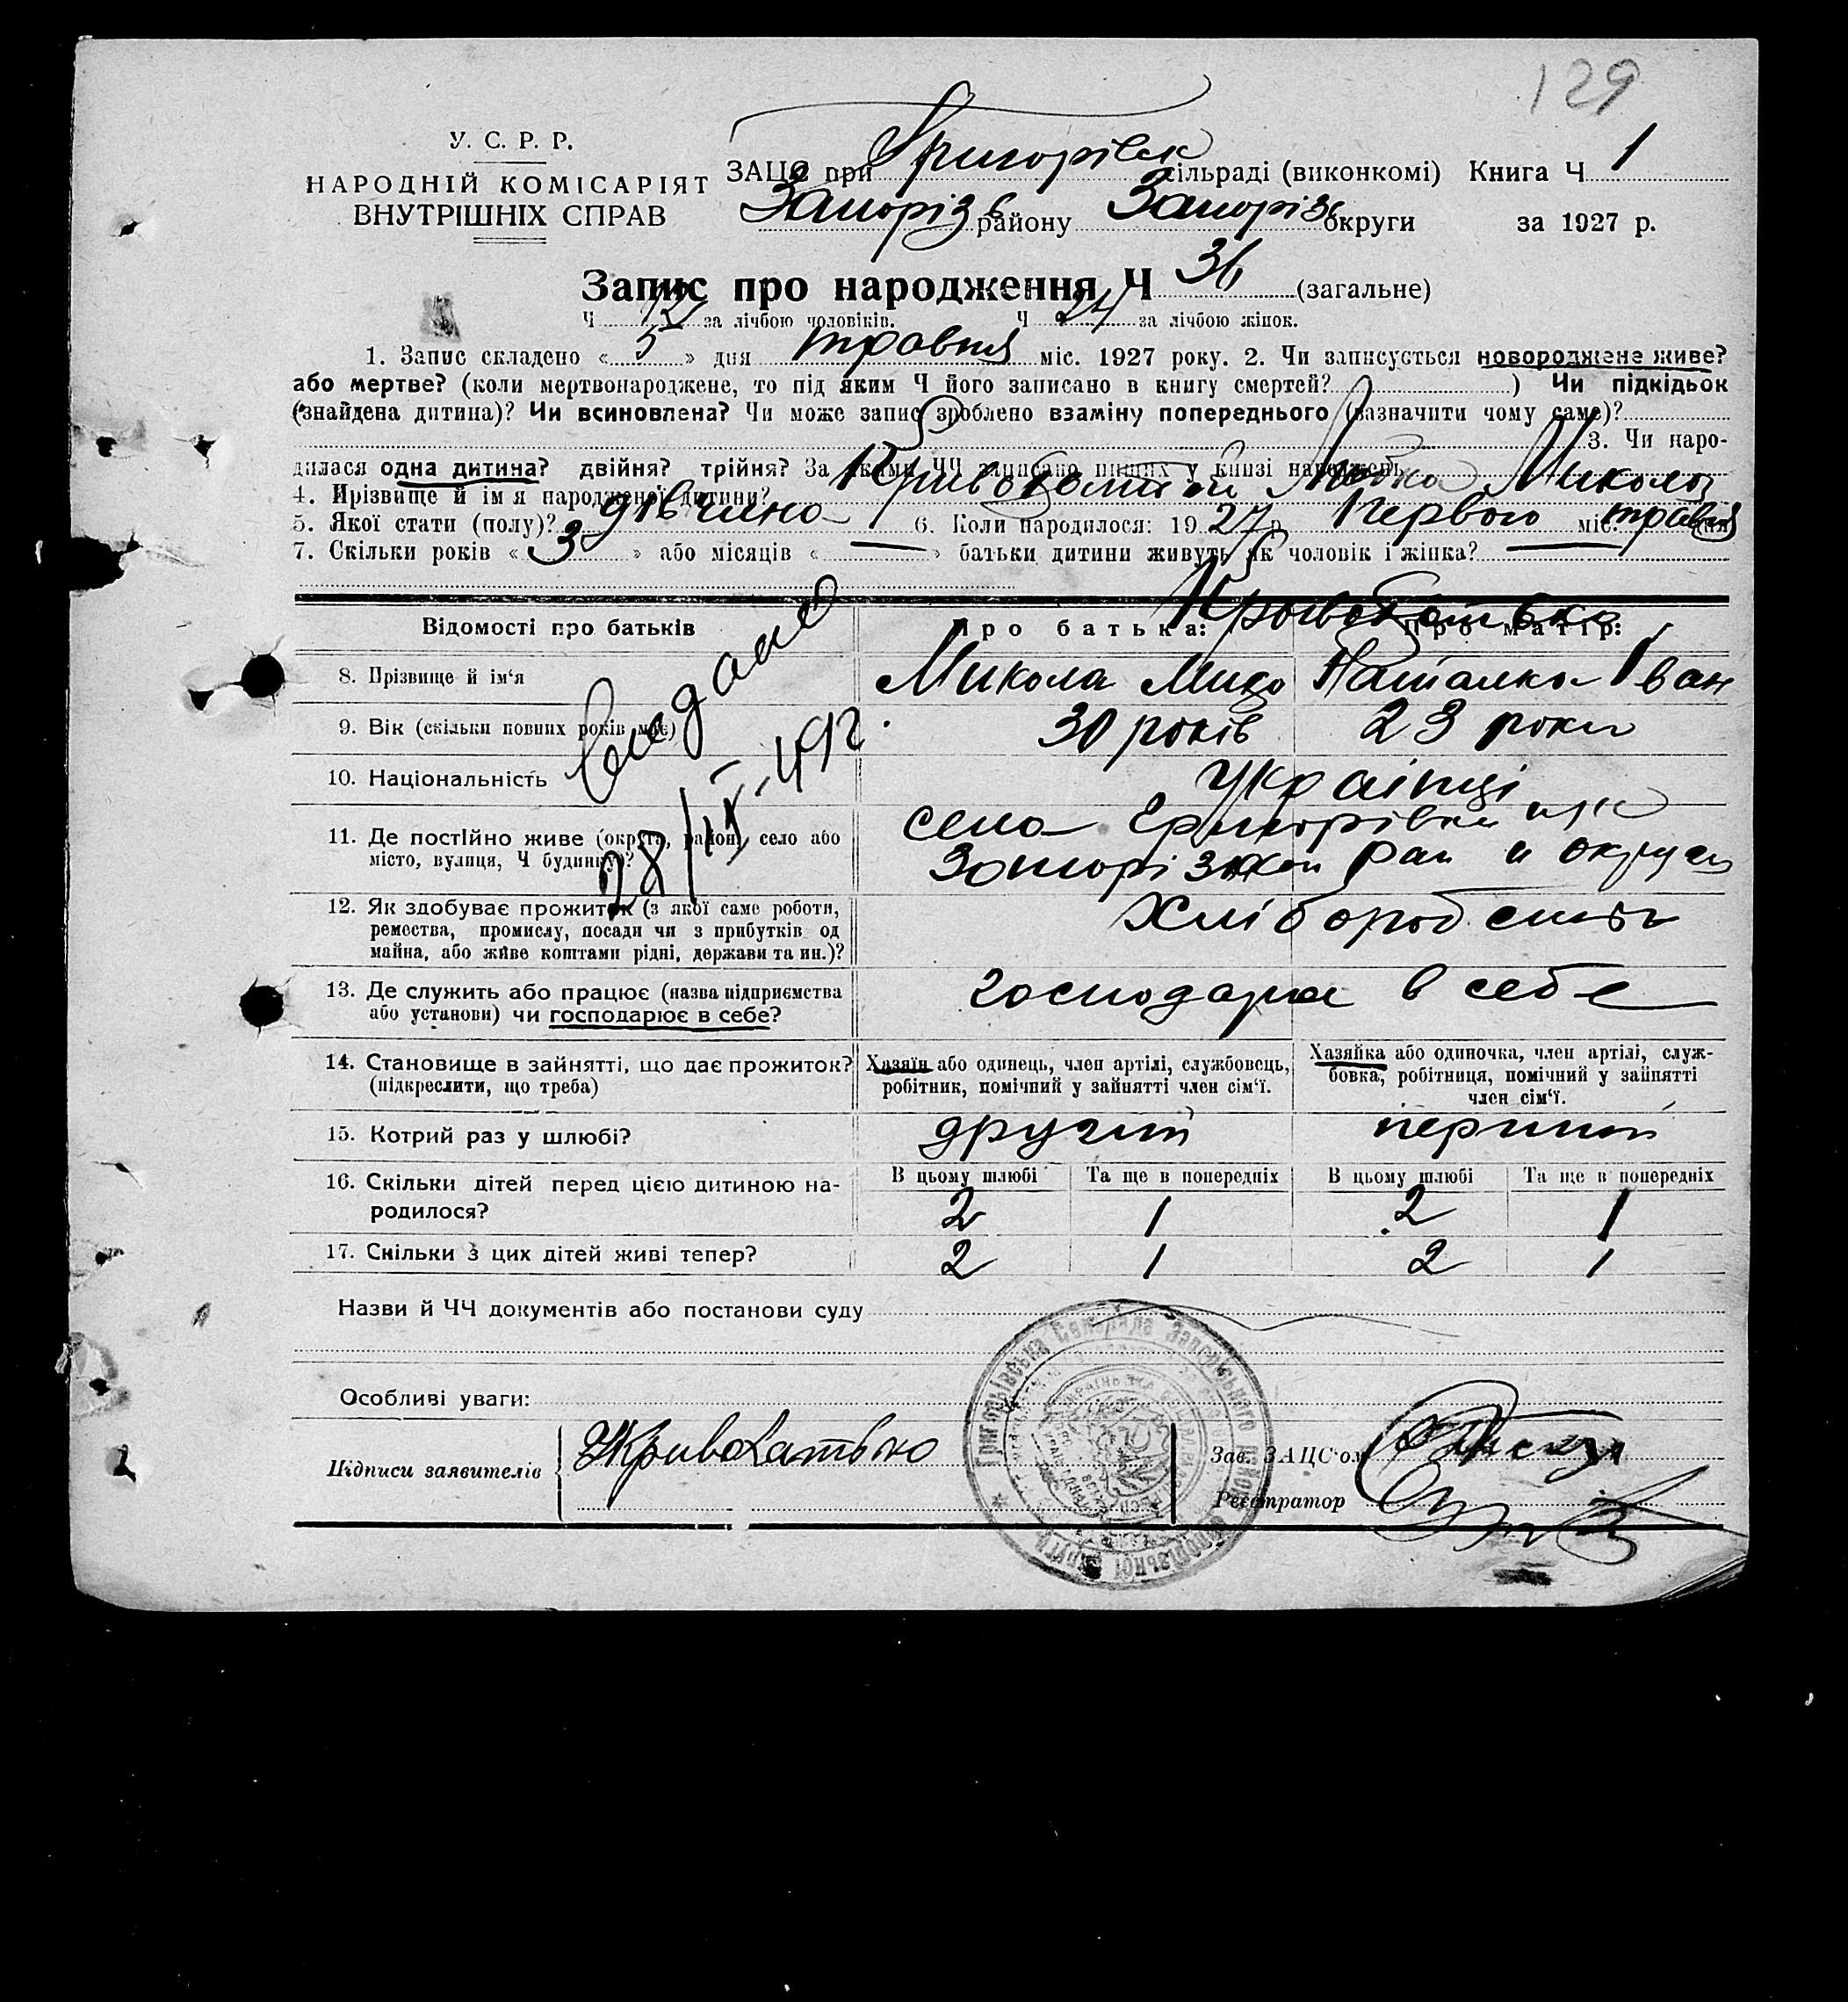 129
У. С. Р. Р.
НАРОДНІЙ КОМІСАРІЯТ
ВНУТРІШНІХ СПРАВ
ЗАЦС при Григорівск сільраді (виконкомі) Книга Ч 1
Запоріз району Запоріз округи за 1927 р.
Запис про народження Ч 36 (загальне)
Ч 12 за лічбою чоловіків. Ч 24 за лічбою жінок.
1. Запис складено « 5 » дня травня міс. 1927 року. 2. Чи записується новороджене живе?
або мертве? (коли мертвонароджене, то під яким Ч його записано в книгу смертей? ) Чи підкідьок
(знайдена дитина)? Чи всиновлена? Чи може запис зроблено взаміну попереднього (зазначити чому саме)?
3. Чи наро-
дилася одна дитина? двійня? трійня? За якими ЧЧ записано инших у книзі народжень
4. Прізвище й ім'я народженої дитини? Микол
5. Якої стати (полу)? дівчина 6. Коли народилося: 1927 р. Первого міс. травня дня
7. Скільки років « 3 » або місяців « — » батьки дитини живуть як чоловік і жінка? —
Відомості про батьків Про батька: Про матір:
8. Прізвище й ім'я Микола Наталка Іван
9. Вік (скільки повних років має) 30 років 23 роки
10. Національність українці
видано
28/IX-49г.
11. Де постійно живе (округа, район, село або
місто, вулиця, Ч будинку)?
села Григорівки
рай й округи
12. Як здобуває прожиток (з якої саме роботи,
ремества, промислу, посади чи з прибутків од
майна, або живе коштами рідні, держави та ин.)?
13. Де служить або працює (назва підприємства
або установи) чи господарює в себе?
господарює в себе
14. Становище в зайнятті, що дає прожиток?
(підкреслити, що треба)
Хазяїн або одинець, член артілі, службовець,
робітник, помічний у зайнятті член сім'ї.
Хазяйка або одиночка, член артілі, служ-
бовка, робітниця, помічний у зайнятті
член сім'ї.
15. Котрий раз у шлюбі? другий перший
16. Скільки дітей перед цією дитиною на-
родилося?
В цьому шлюбі Та ще в попередніх В цьому шлюбі Та ще в попередніх
2 1 2 1
17. Скільки з цих дітей живі тепер? 2 1 2 1
Назви й ЧЧ документів або постанови суду
Особливі уваги:
Підписи заявителів
Зав. ЗАЦС'ом
Реєстратор